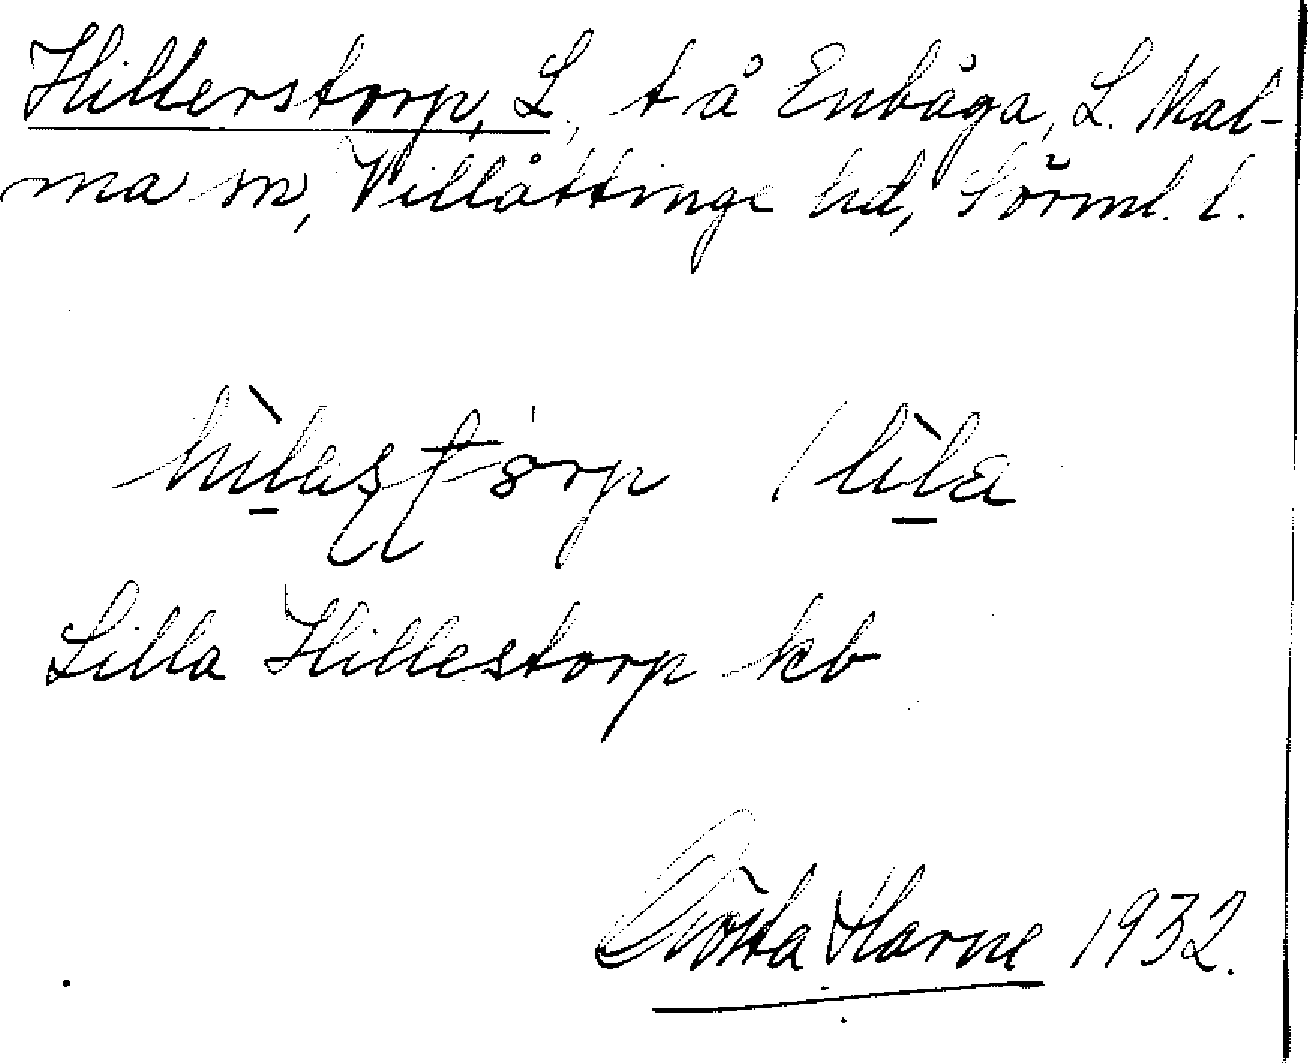 Hillerstorp, L., t å Enbåga, L. Mal-
ma sn, Villåttinge hd, Sörml. l.
hìlasʈorp / lìla
Lilla Hillestorp kb
Gösta Harne 1932.